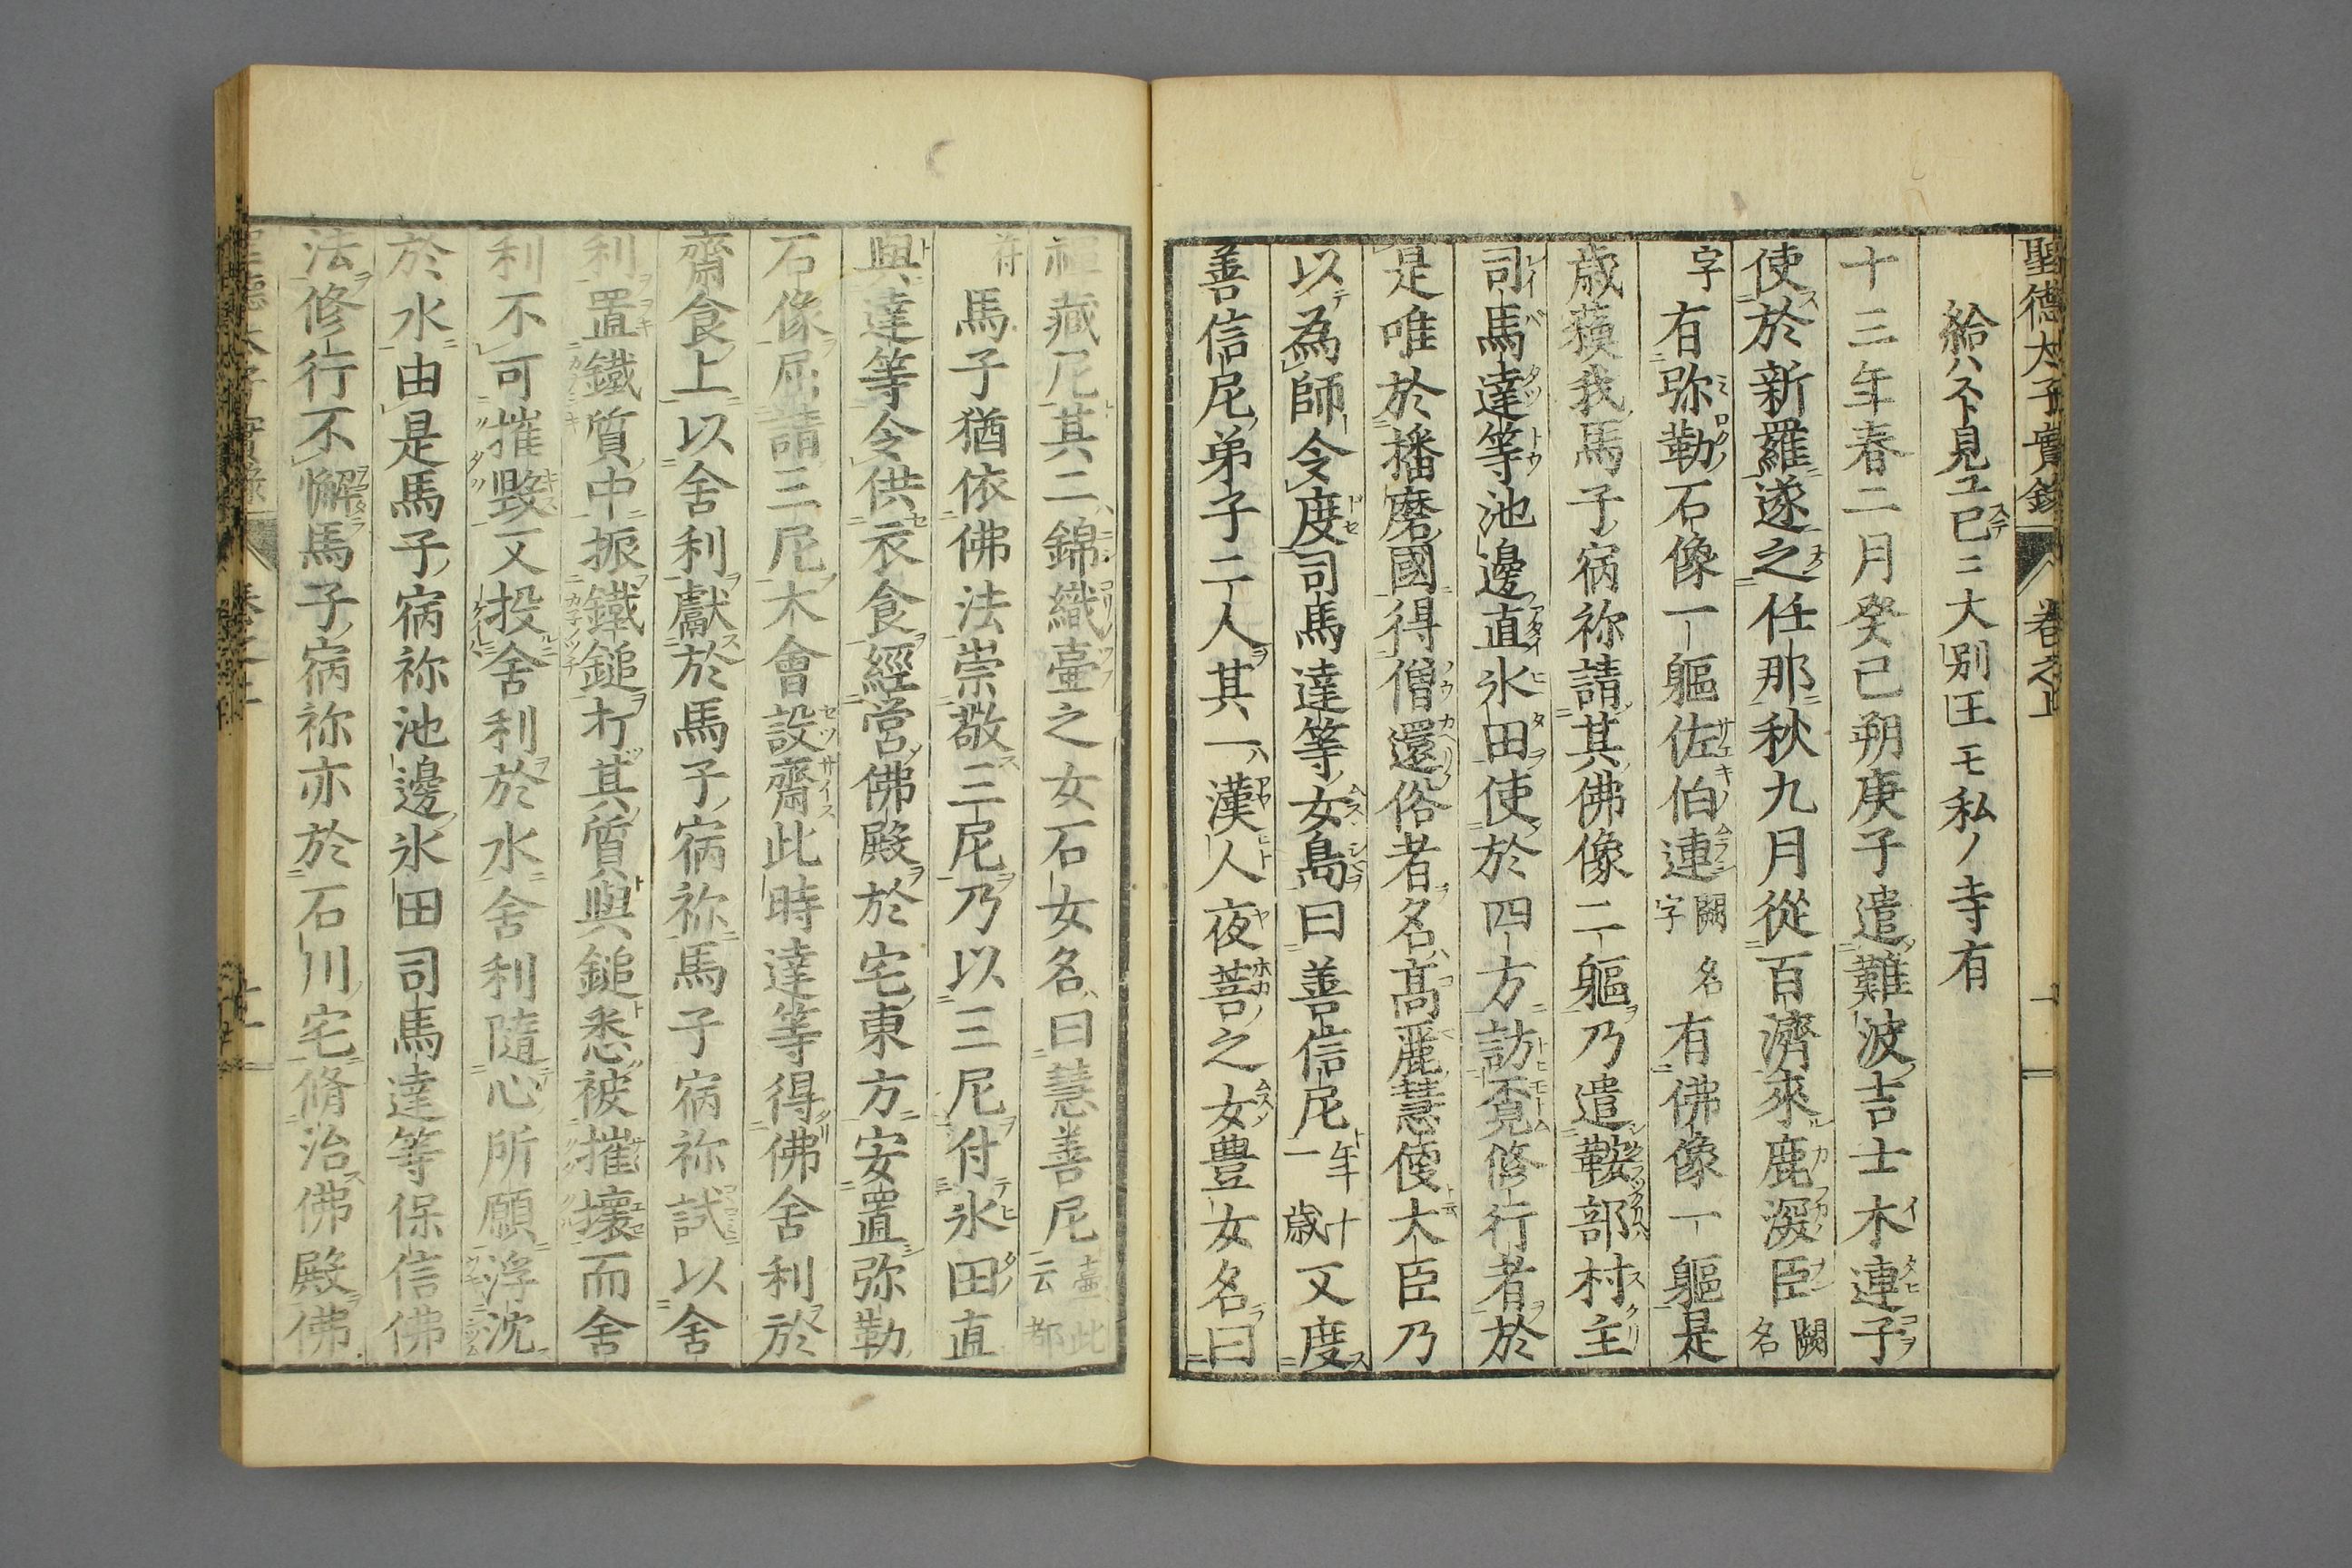 聖德太子實錄
卷之上
給ハスト見ユ已ニ大別王モ私ノ寺有
十三年春二月癸巳朔庚子遣難波吉士木連子
使於新羅遂之任那秋九月從百濟來鹿深臣闕名
字有弥勒石像一軀佐伯連闕名字有佛像一軀是
歲蘓我馬子宿祢請其佛像二軀乃遣鞍部村主
司馬達等池邊直氷田使於四方訪覓修行者於
是唯於播磨國得僧還俗者名髙麗慧便大臣乃
以為師令度司馬達等女島曰善信尼年十一歲又度
善信尼弟子二人其一漢人夜菩之女豊女名曰
禪藏尼其二錦織壷之女石女名曰慧善尼壷此云都
符馬子猶依佛法崇敬三尼乃以三尼付氷田直
與達等令供衣食經営佛殿於宅東方安置弥勒
石像屈請三尼大會設齋此時達等得佛舍利於
齋食上以舍利獻於馬子宿祢馬子宿祢試以舍
利置鐵質中振鐵鎚打其質與鎚悉被摧壞而舍
利不可摧毀又投舍利於水舍利隨心所願浮沈
於水由是馬子宿祢池邊氷田司馬達等保信佛
法修行不懈馬子宿祢亦於石川宅脩治佛殿佛